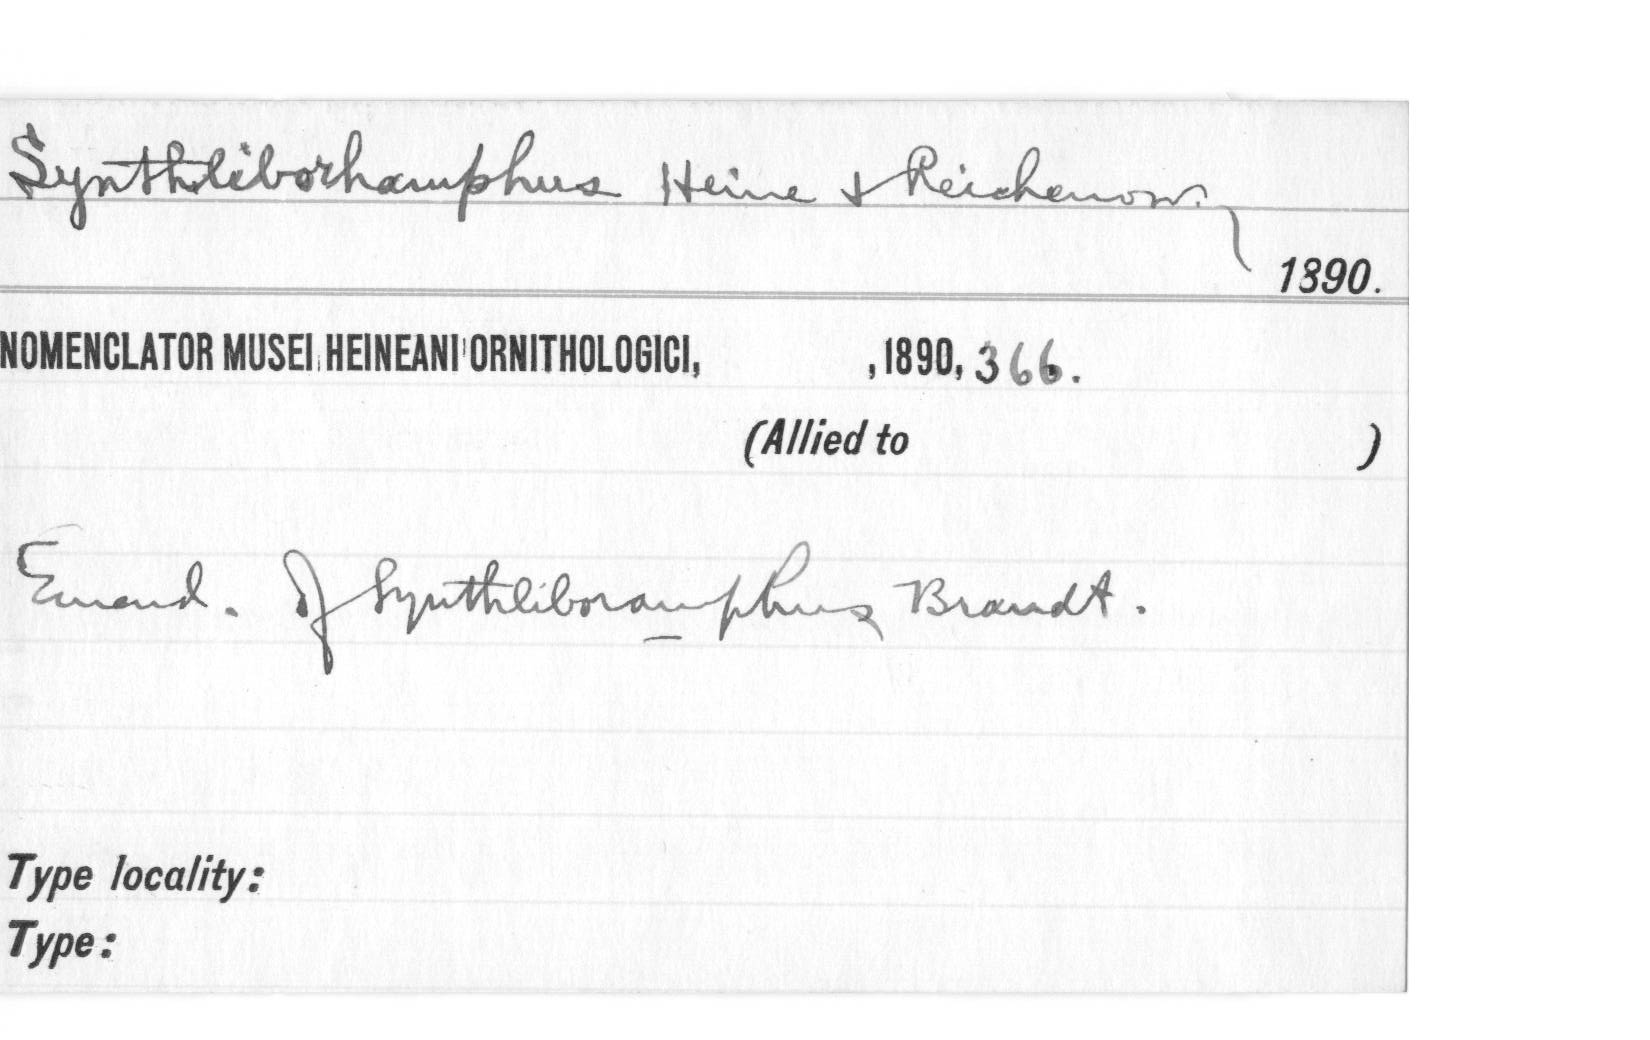 Synthliborhamphus Heine & Reichenow.
1890.
NOMENCLATOR MUSEI HEINEANI ORNITHOLOGICI, , 1890, 366.
(Allied to )
Emend. of Synthliboramphus Brandt.
Type locality:
Type: